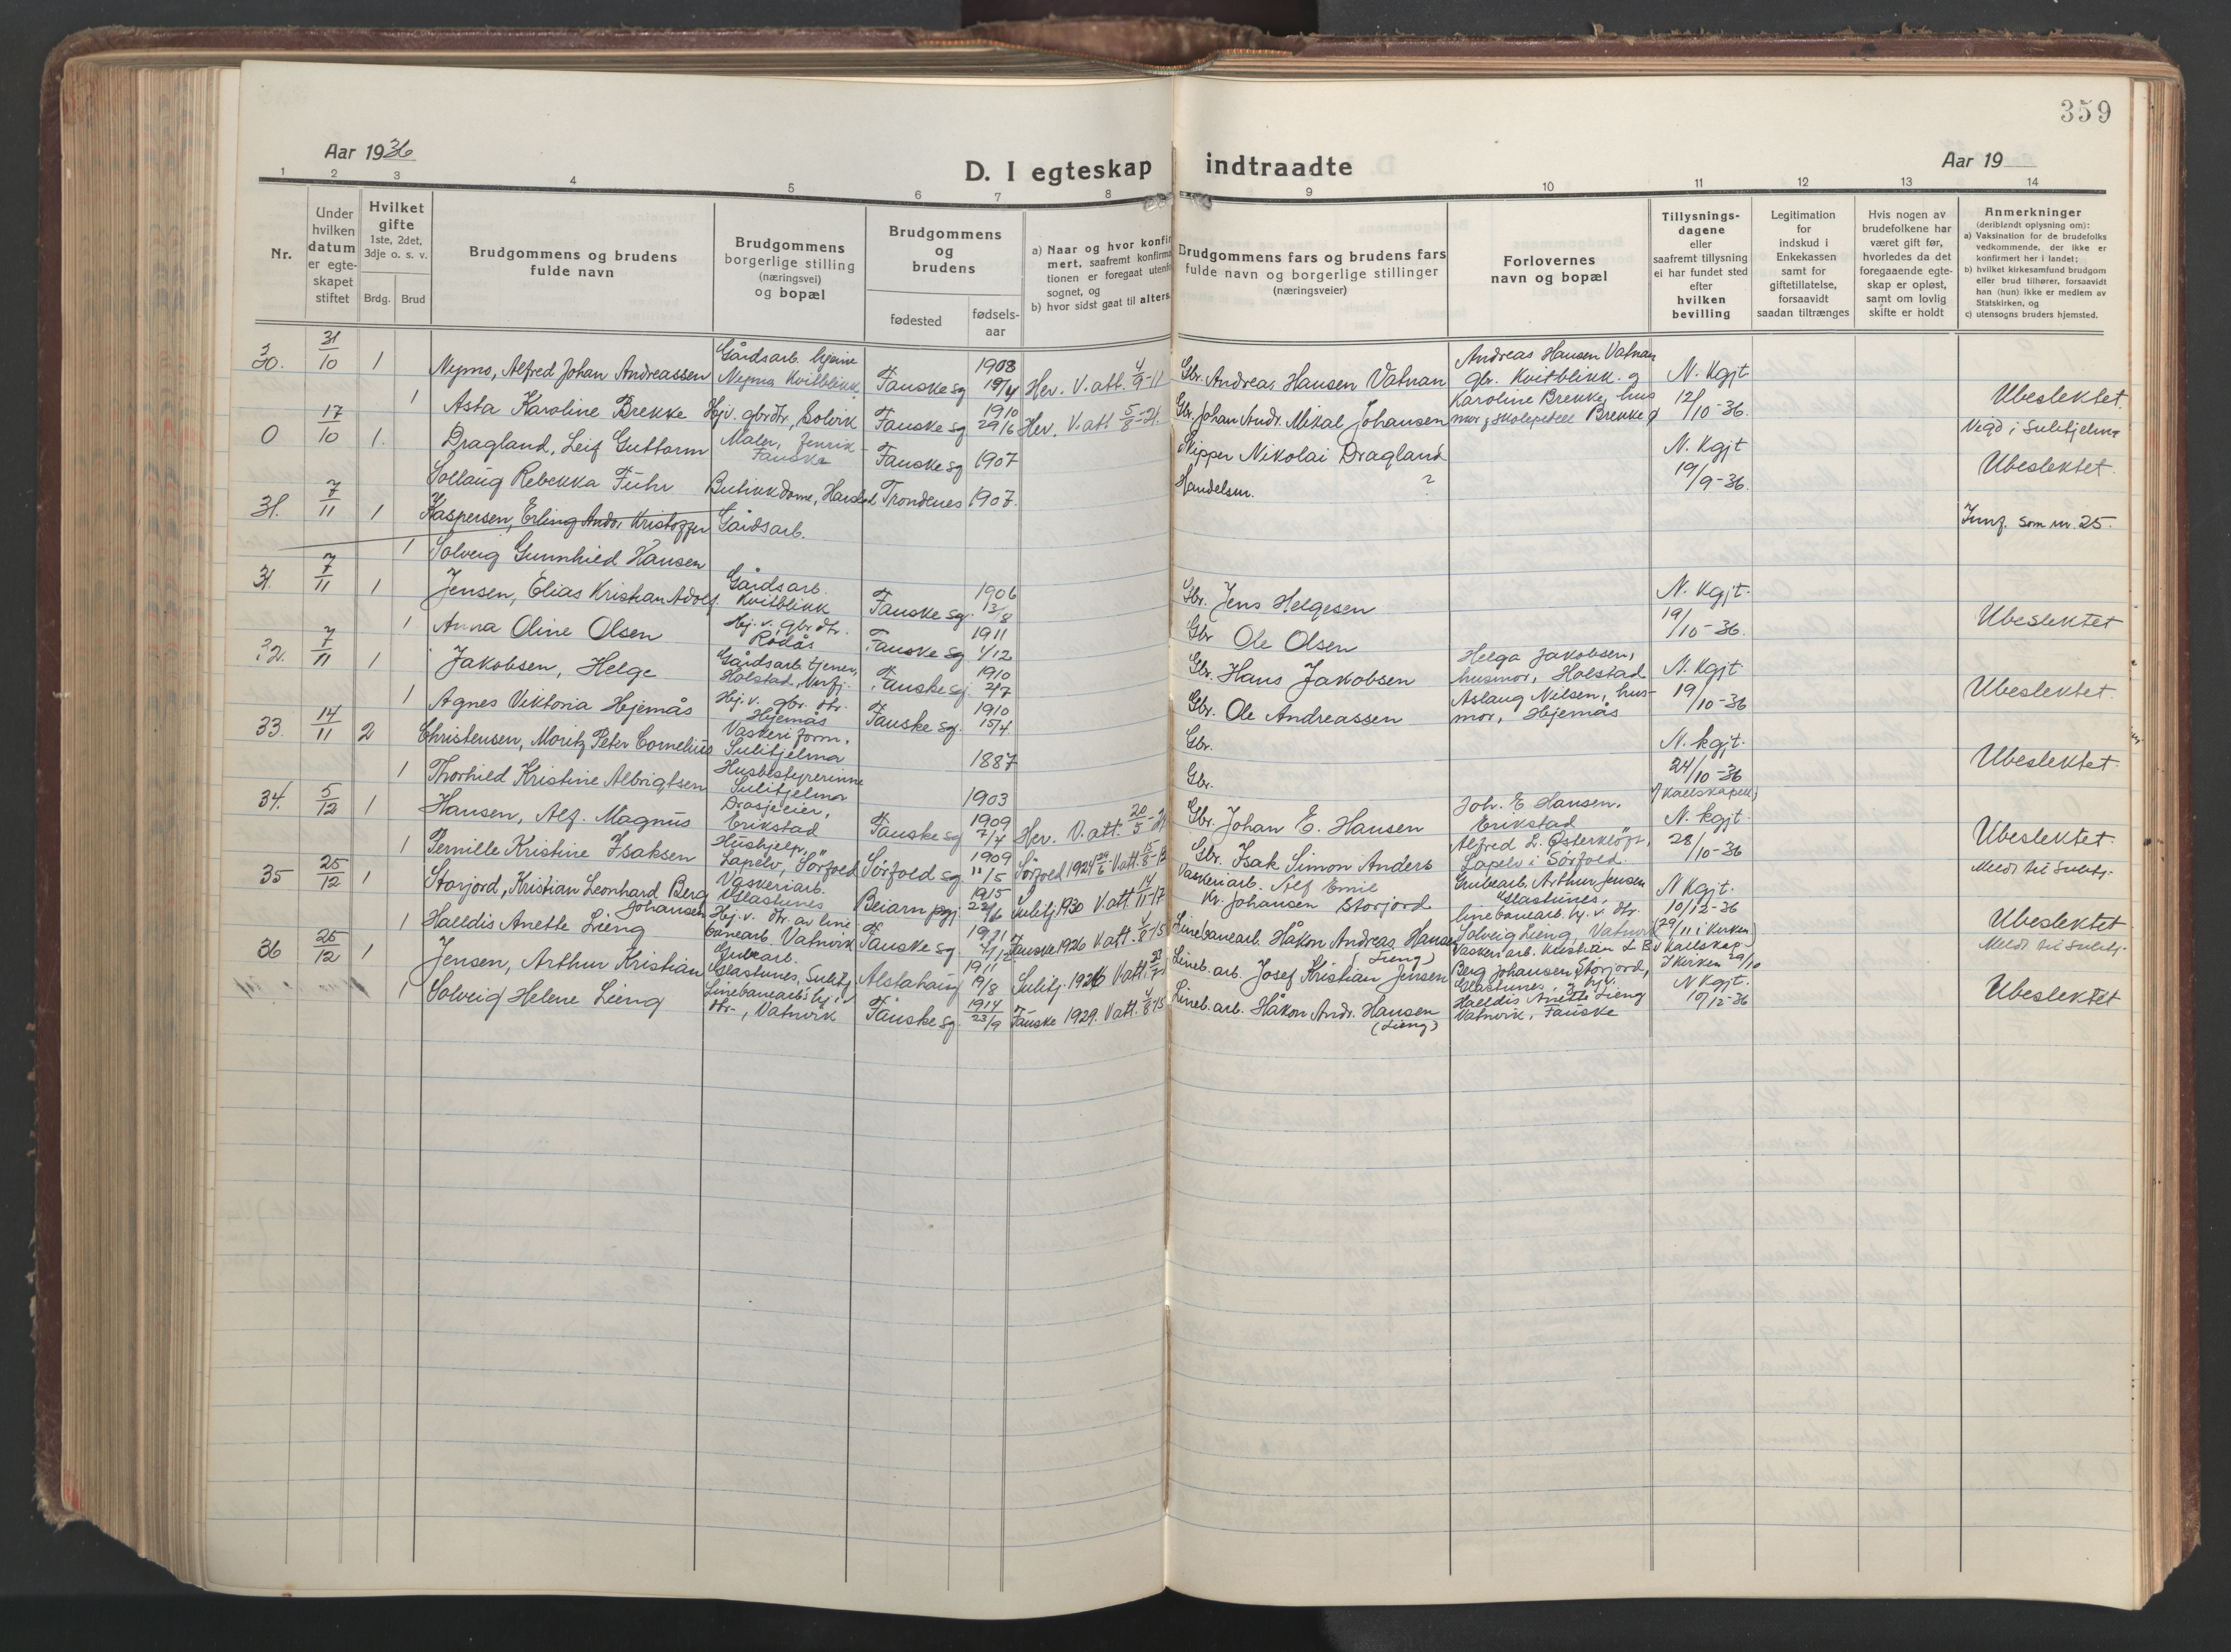 359
Aar 1936
D. I egteskap indtraadte
Aar 19
1 2 3 4 5 6 7 8 9 10 11 12 13 14
Nr.
Under hvilken datum er egte-skapet stiftet
Hvilket gifte
1ste, 2det, 3dje o. s. v.
Brdg. Brud
Brudgommens og brudens fulde navn
Brudgommens borgerlige stilling (næringsvei) og bopæl
Brudgommens og brudens
fødested
fødsels-aar
a) Naar og hvor konfir
mert, saafremt konfirma
tionen er foregaat utenfo
sognet, og
b) hvor sidst gaat til alters.
Brudgommens fars og brudens fars
fulde navn og borgerlige stillinger
(næringsveier)
Forlovernes
navn og bopæl
Tillysnings-
dagene
eller
saafremt tillysning
ei har fundet sted
efter
hvilken
bevilling
Legitimation
for
indskud i
Enkekassen
samt for
giftetillatelse,
forsaavidt
saadan tiltrænges
Hvis nogen av
brudefolkene har
været gift før,
hvorledes da det
foregaaende egte-
skap er opløst,
samt om lovlig
skifte er holdt
Anmerkninger
(deriblandt oplysning om):
a) Vaksination for de brudefolks
vedkommende, der ikke er
konfirmert her i landet;
b) hvilket kirkesamfund brudgom
eller brud tilhører, forsaavidt
han (hun) ikke er medlem av
Statskirken, og
c) utensogns bruders hjemsted.
30. 31/10 1 Nymo, Alfred Johan Andreassen Gårdsarb. hjeme Nymo, Kvitblikk Fauske sg 1903 19/4 Her. V. att. 4/9-11 Gbr. Andreas Hansen Vatnan Andreas Hansen Vatnan gbr. Kvitblikk. og N. Kgjt
1 Asta Karoline Brekke Hj.v. gbr dtr., Solvik Fauske sg 1910 29/6 Her. V. att 5/8-21. Gbr. Johan Andr. Mikal Johansen Karoline Brekke, hus mor, Brekke 12/10-36. Ubeslektet
0 17/10 1. Dragland, Leif Guttorm Maler, Fauske Fauske sg 1907 Skipper Nikolai Dragland N. Kgjt Vigd i Sulitjelma
Sollaug Rebekka Führ Butikkdame, Harstad Trondenes 1907. Handelsm. ? 19/9-36. Ubeslektet.
31. 7/11 1 Kaspersen, Erling Andr. Kristoffer Gårdsarb. Innf. som nr. 25.
1 Solveig Gunnhild Hansen
31. 7/11 1 Jensen, Elias Kristian Adolf Gårdsarb. Kvitblikk Fauske sg. 1906 13/8 Gbr. Jens Helgesen N. Kgjt.
1 Anna Oline Olsen Hj. v. gbr dtr. Rödås Fauske sg 1911 1/12 Gbr Ole Olsen 19/10-36. Ubeslektet
32. 7/11 1 Jakobsen, Helge Gårdsarb. tjener, Holstad, Fauske sg 1910 2/7 Gbr. Hans Jakobsen Helga Jakobsen, husmor, Holstad N. Kgjt
1 Agnes Viktoria Hjemås Hj. v. gbr. dtr. Hjemås Fauske sg. 1910 15/4. Gbr. Ole Andreassen Aslaug Nilsen, hus-mor, Hjemås 19/10-36 Ubeslektet.
33. 14/11 2 Christensen, Moritz Peter Cornelius Vaskeriform. Sulitjelma 1887 Gbr. N. kgjt.
1 Thorhild Kristine Albrigtsen Husbestyrerinne Sulitjelma 1903 Gbr. 24/10-36 Ubeslektet.
34. 5/12 1 Hansen, Alf. Magnus Drosjeeier, Erikstad Fauske sg 1909 7/4 Her. V. att. 20/5- Gbr. Johan E. Hansen Joh. E Hansen, Erikstad N. kgjt.
1 Pernille Kristine Isaksen Hushjelp, Lapelv, Sörfold Sörfold sg 1909 11/5 Sörfold 1924 V att. Gbr. Isak Simon Anders Alfred L. Österklöft, Lapelv i Sörfold. 28/10-36 Ubeslektet.
35 25/12 1 Storjord, Kristian Leonhard Berg Johansen Vaskeriarb. Glastunes Beiarn pgj 1915 22/6 Sulitj 1930 V att 14/11-17 Vaskeriarb. Alf Emil Kr. Johansen Storjord Grubearb. Arthur Jensen Glastunes, N Kgjt. Meldt til Sulitj.
1 Halldis Anette Lieng Hj. v. dtr. av line banearb. Vatnvik Fauske sg 1911 Fauske 1926 V att. Linebanearb. Håkon Andreas Hansen (Lieng) linebanearb. hj. v. dtr. Solveig Lieng, Vatnvik 10/12-36 (29/11 i Kirken) Ubeslektet
36 25/12 1 Jensen, Arthur Kristian Grubearb. Glastunes, Sulitj. Alstahaug 1911 19/8 Sulitj. 1926 V att. Lineb. arb. Josef Kristian Jensen Vaskeriarb. Kristian L. B Berg Johansen Storjord, Glastunes, N Kgjt. Meldt til Sulitj.
1 Solveig Helene Lieng Linebanearb's hj. v. dtr., Vatnvik Fauske sg 1914 23/9 Fauske 1929. V att. 4/8-15 Lineb. arb. Håkon Andr. Hansen (Lieng) Halldis Anette Lieng Vatnvik, Fauske 10/12-36 Ubeslektet